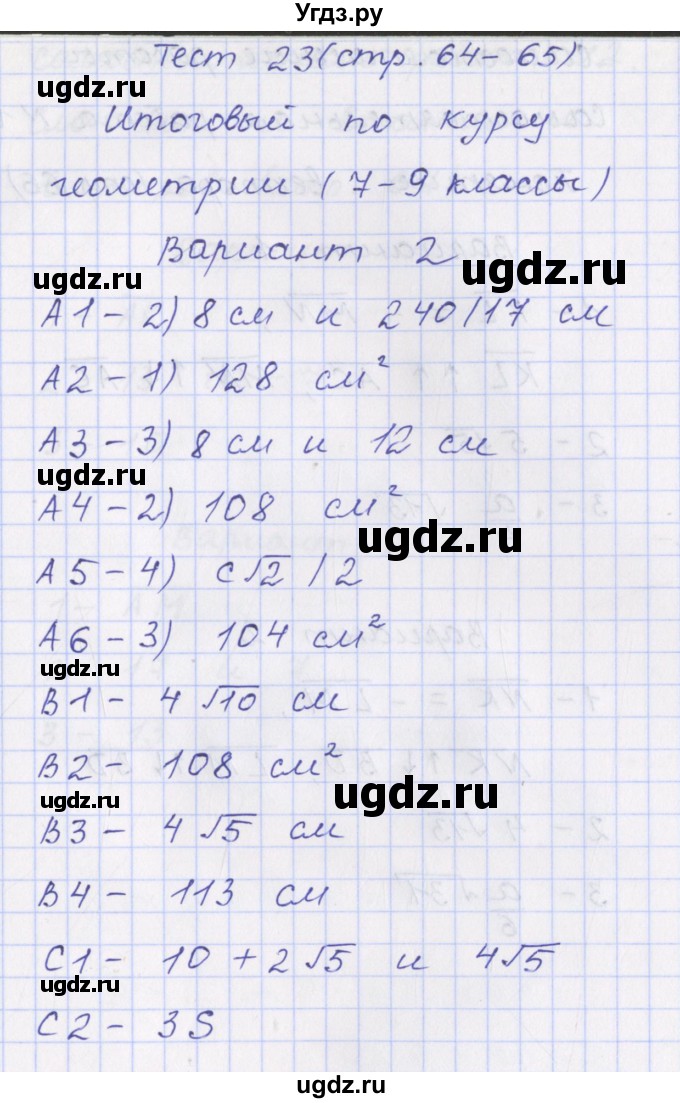 Угдз.ру
Тест 23(стр. 64-65)
ugdz.ru
Итоговый по курсу
геометрии (7-9 классы)
Вариант 2
ugdz.ru
ugdz.ru
А1-2) 8 см и 240/17 см
А2-1) 128 см²
А3-3) 8 см и 12 см
ugdz.ru
А4-2) 108 см²
ugdz.ru
А5-4) c√2 /2
А6-3) 104 см²
ugdz.ru
В1- 4√10 см
В2- 108 см²
ugdz.ru
ugdz.ru
В3- 4√5 см
В4- 113 см
С1- 10 + 2√5 и 4√5
ugdz.ru
С2- 3S
ugdz.ru